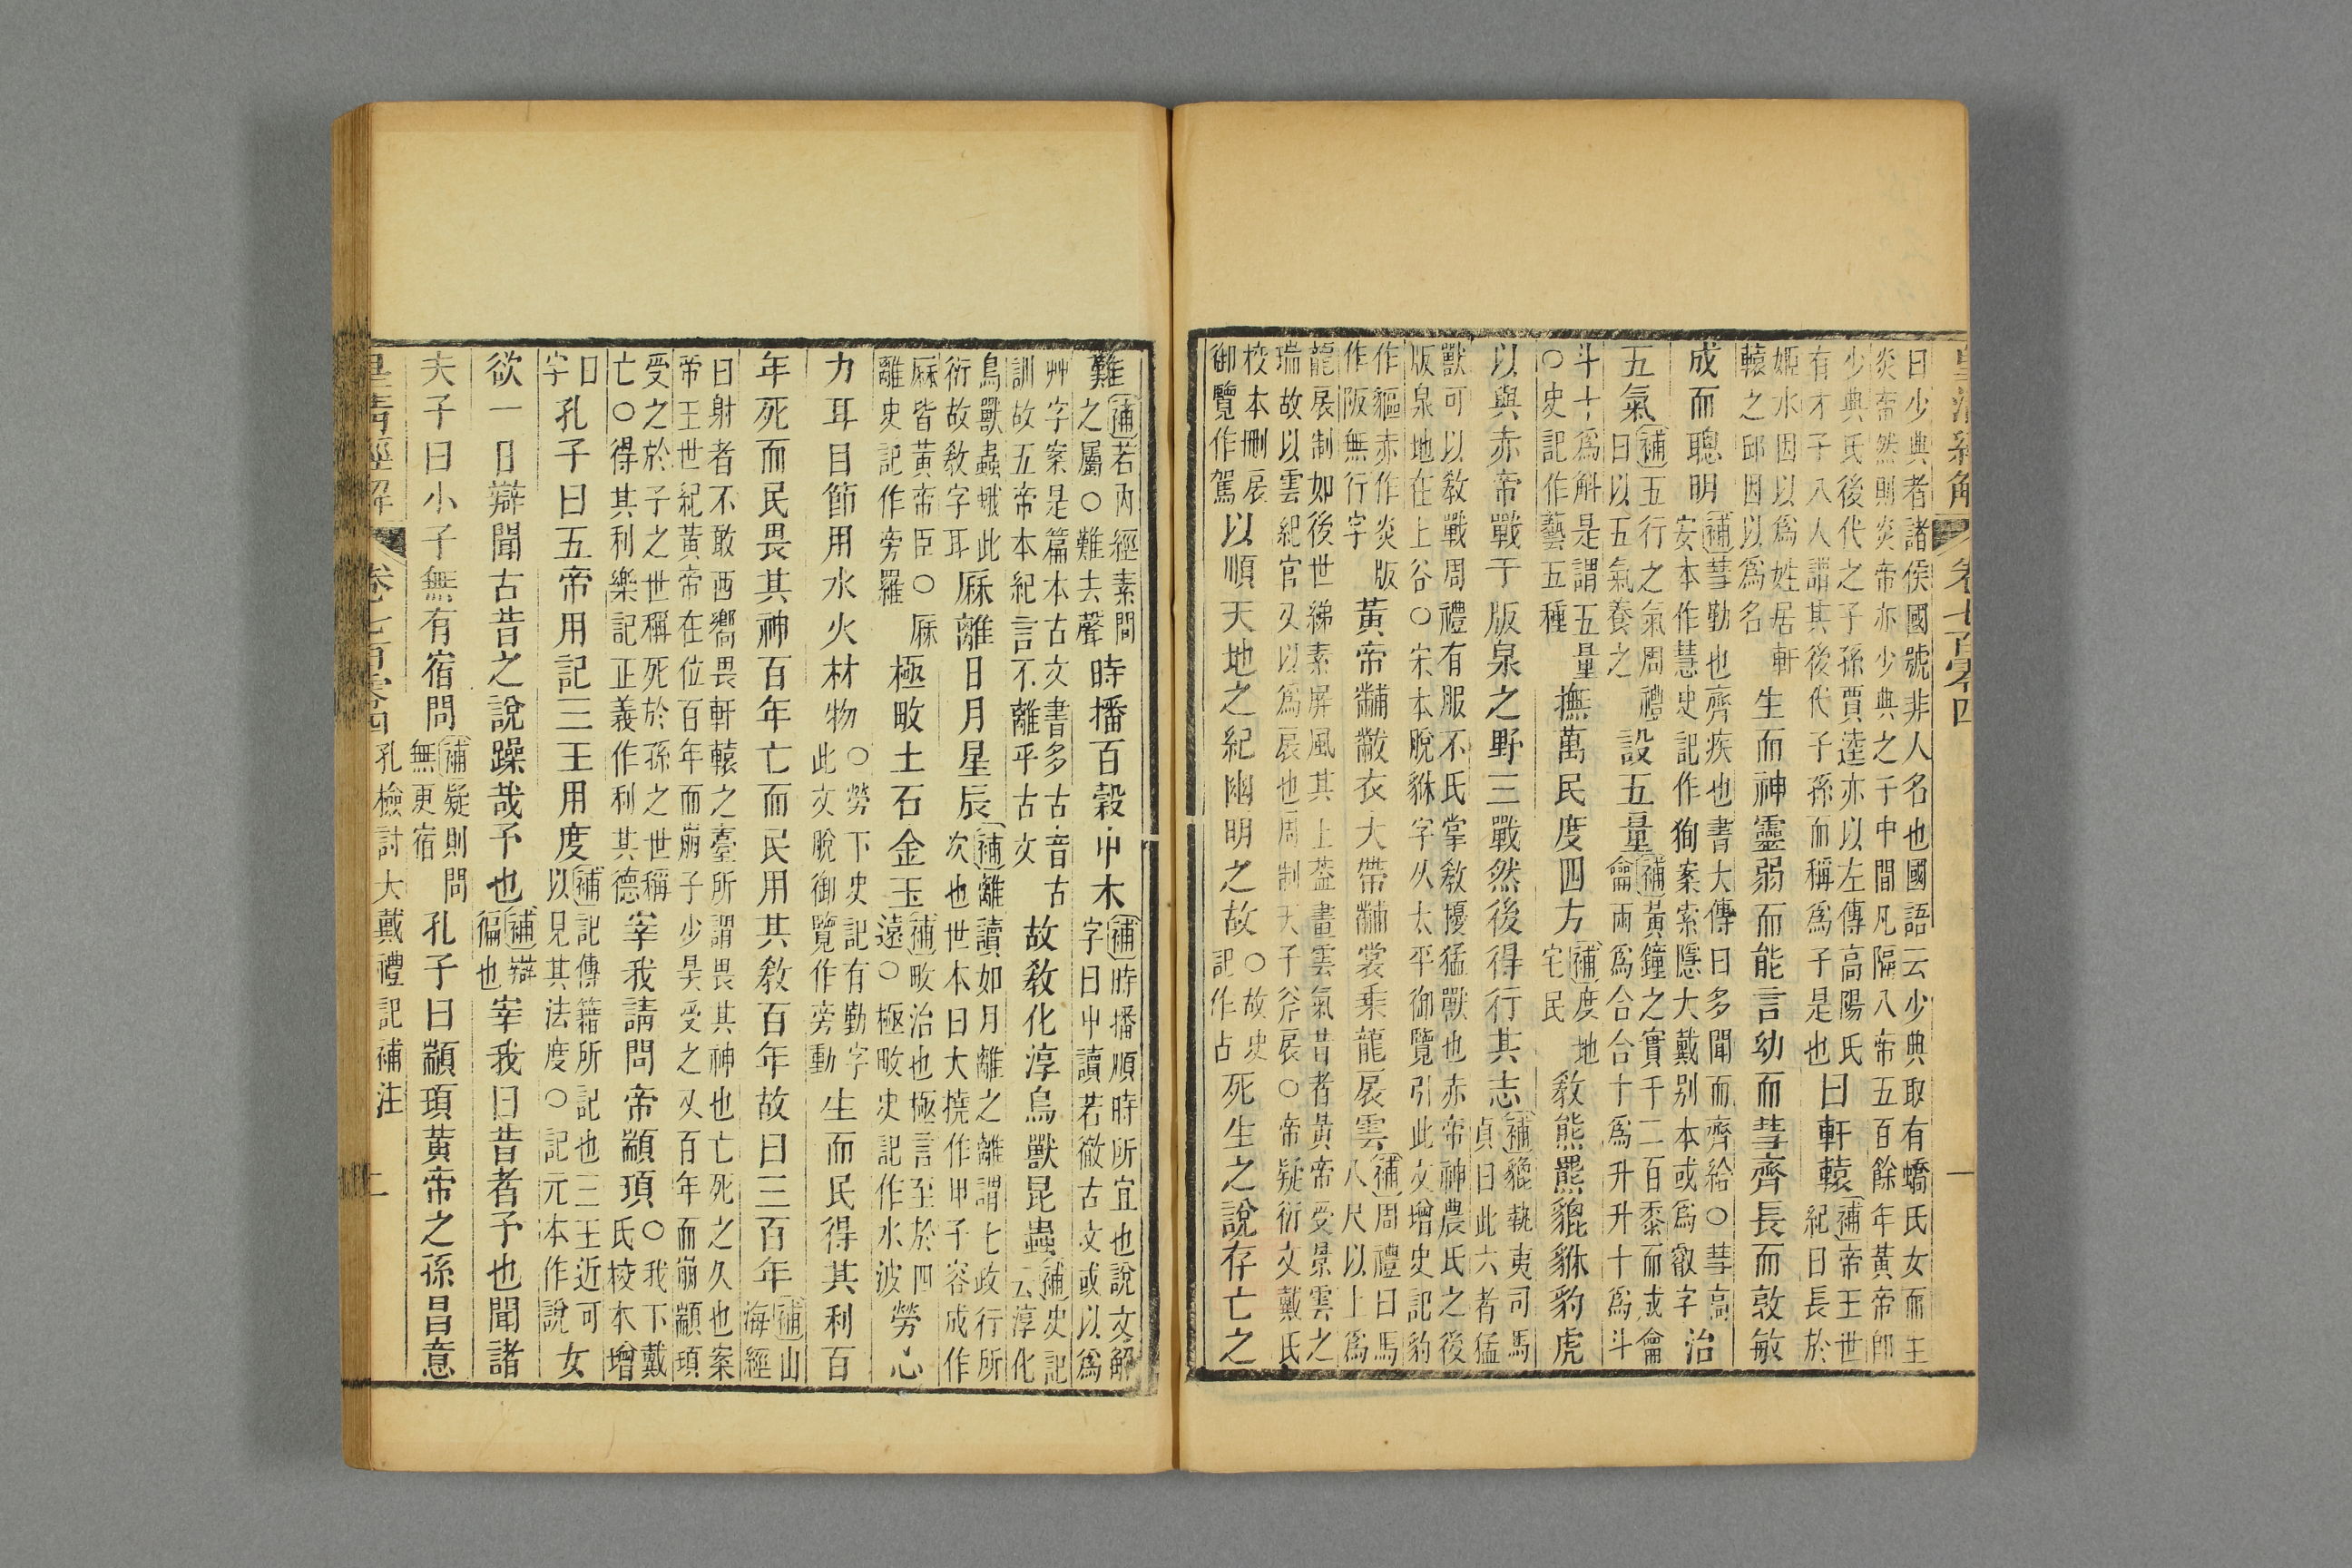 皇清經解 卷七百零四 一
曰少典者諸侯國號非人名也國語云少典取有蟜氏女而生
炎帝然則炎帝亦少典之子中間凡隔八帝五百餘年黃帝卽
少典氏後代之子孫賈逵亦以左傳高陽氏
有才子八人謂其後代子孫而稱爲子是也
曰軒轅
補帝王世
紀曰長於
姬水因以爲姓居軒
轅之邱因以爲名
生而神靈弱而能言幼而彗齊長而敦敏
成而聰明
補彗勤也齊疾也書大傳曰多聞而齊給○彗高
安本作慧史記作狥案索隱大戴别本或爲叡字
治
五氣
補五行之氣周禮
曰以五氣養之
設五量
補黃鐘之實千二百黍而或龠
龠兩爲合合十爲升升十爲斗
斗十爲斛是謂五量
○史記作藝五種
撫萬民度四方
補度地
宅民
敎熊羆貔貅豹虎
以與赤帝戰于版泉之野三戰然後得行其志
補貔執夷司馬
貞曰此六者猛
獸可以敎戰周禮有服不氏掌敎擾猛獸也赤帝神農氏之後
版泉地在上谷○宋本脫貅字从太平御覽引此文增史記豹
作貙赤作炎版
作阪無行字
黃帝黼黻衣大帶黼裳乘龍扆雲
補周禮曰馬
八尺以上爲
龍扆制如後世綈素屏風其上蓋畫雲氣昔者黃帝受景雲之
瑞故以雲紀官又以爲扆也周制天子斧扆○帝疑衍文戴氏
校本刪扆
御覽作駕
以順天地之紀幽明之故
○故史
記作占
死生之說存亡之
難
補若內經素問
之屬○難去聲
時播百穀屮木
補時播順時所宜也說文解
字曰屮讀若徹古文或以爲
艸字案是篇本古文書多古音古
訓故五帝本紀言不離乎古文
故敎化淳鳥獸昆蟲
補史記
云淳化
鳥獸蟲蛾此
衍故敎字耳
厤離日月星辰
補離讀如月離之離謂七政行所
次也世本曰大撓作甲子容成作
厤皆黃帝臣○厤
離史記作旁羅
極畋土石金玉
補畋治也極言至於四
遠○極畋史記作水波
勞心
力耳目節用水火材物
○勞下史記有勤字
此文脫御覽作旁動
生而民得其利百
年死而民畏其神百年亡而民用其敎百年故曰三百年
補山
海經
曰射者不敢西嚮畏軒轅之臺所謂畏其神也亡死之久也案
帝王世紀黃帝在位百年而崩子少昊受之又百年而崩顓頊
受之於子之世稱死於孫之世稱
亡○得其利樂記正義作利其德
宰我請問帝顓頊
○我下戴
氏校本增
曰
字
孔子曰五帝用記三王用度
補記傳籍所記也三王近可
以見其法度○記元本作說
女
欲一日辯聞古昔之說躁哉予也
補辯
徧也
宰我曰昔者予也聞諸
夫子曰小子無有宿問
補疑則問
無更宿
孔子曰顓頊黃帝之孫昌意
皇清經解 卷七百零四 孔檢討大戴禮記補注 二